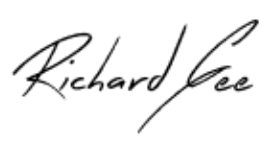 Richard Gee